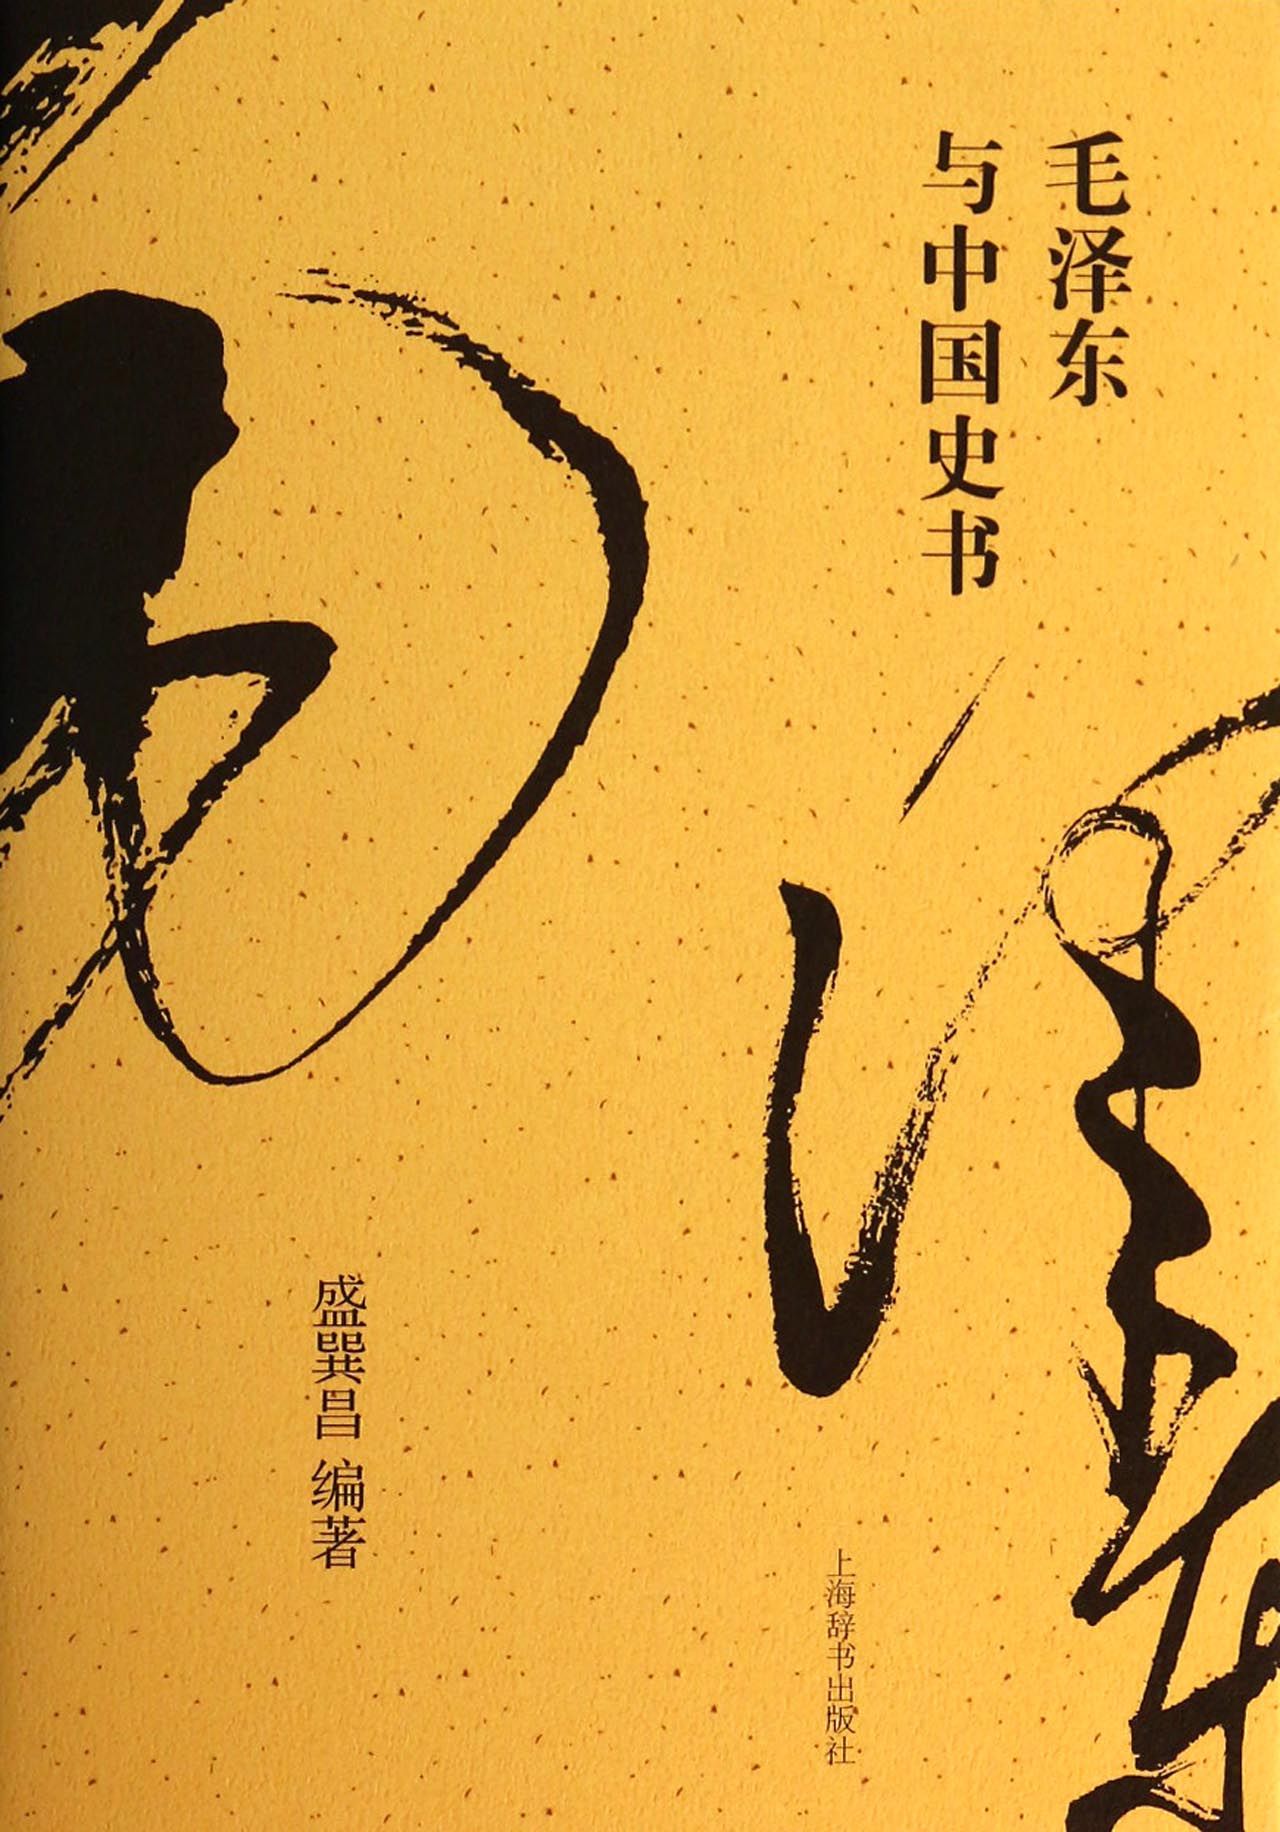 毛泽东
与中国史书
盛巽昌 编著
上海辞书出版社